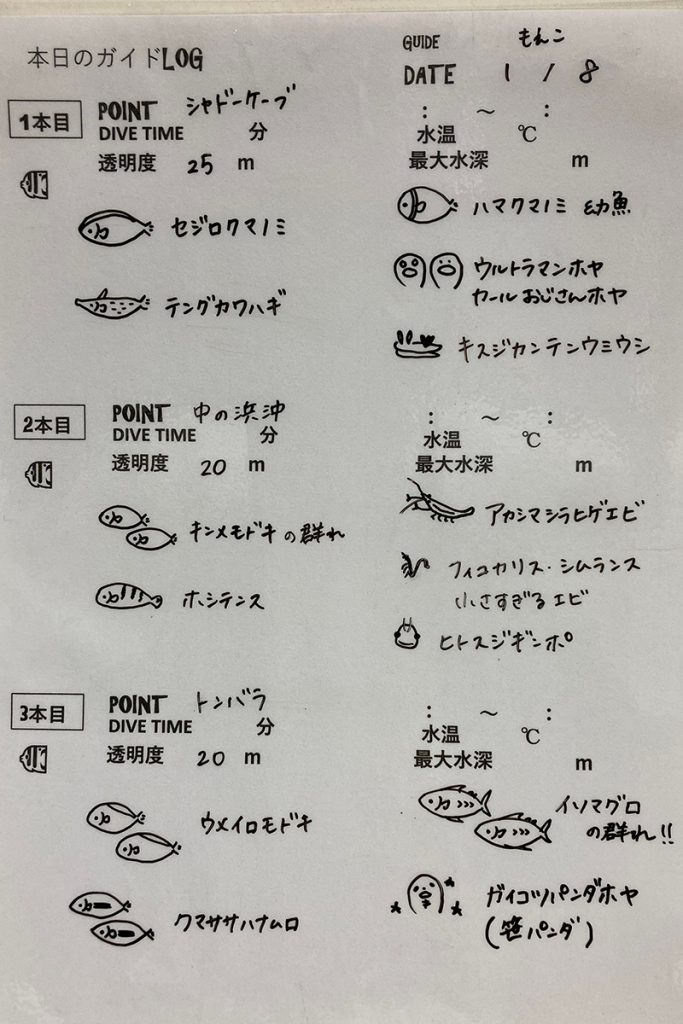 本日のガイドLOG
GUIDE もんこ
DATE 1 / 8
1本目
POINT シャドーケーブ
DIVE TIME 分
: ～ :
水温 ℃
透明度 25 m
最大水深 m
セジロクマノミ
ハマクマノミ 幼魚
ウルトラマンホヤ
カールおじさんホヤ
テングカワハギ
キスジカンテンウミウシ
2本目
POINT 中の浜沖
DIVE TIME 分
: ～ :
水温 ℃
透明度 20 m
最大水深 m
キンメモドキの群れ
アカシマシラヒゲエビ
ホシテンス
フィコカリス・シムランス
小さすぎるエビ
ヒトスジギンポ
3本目
POINT トンバラ
DIVE TIME 分
: ～ :
水温 ℃
透明度 20 m
最大水深 m
ウメイロモドキ
イソマグロ
の群れ!!
クマササハナムロ
ガイコツパンダホヤ
(笹パンダ)